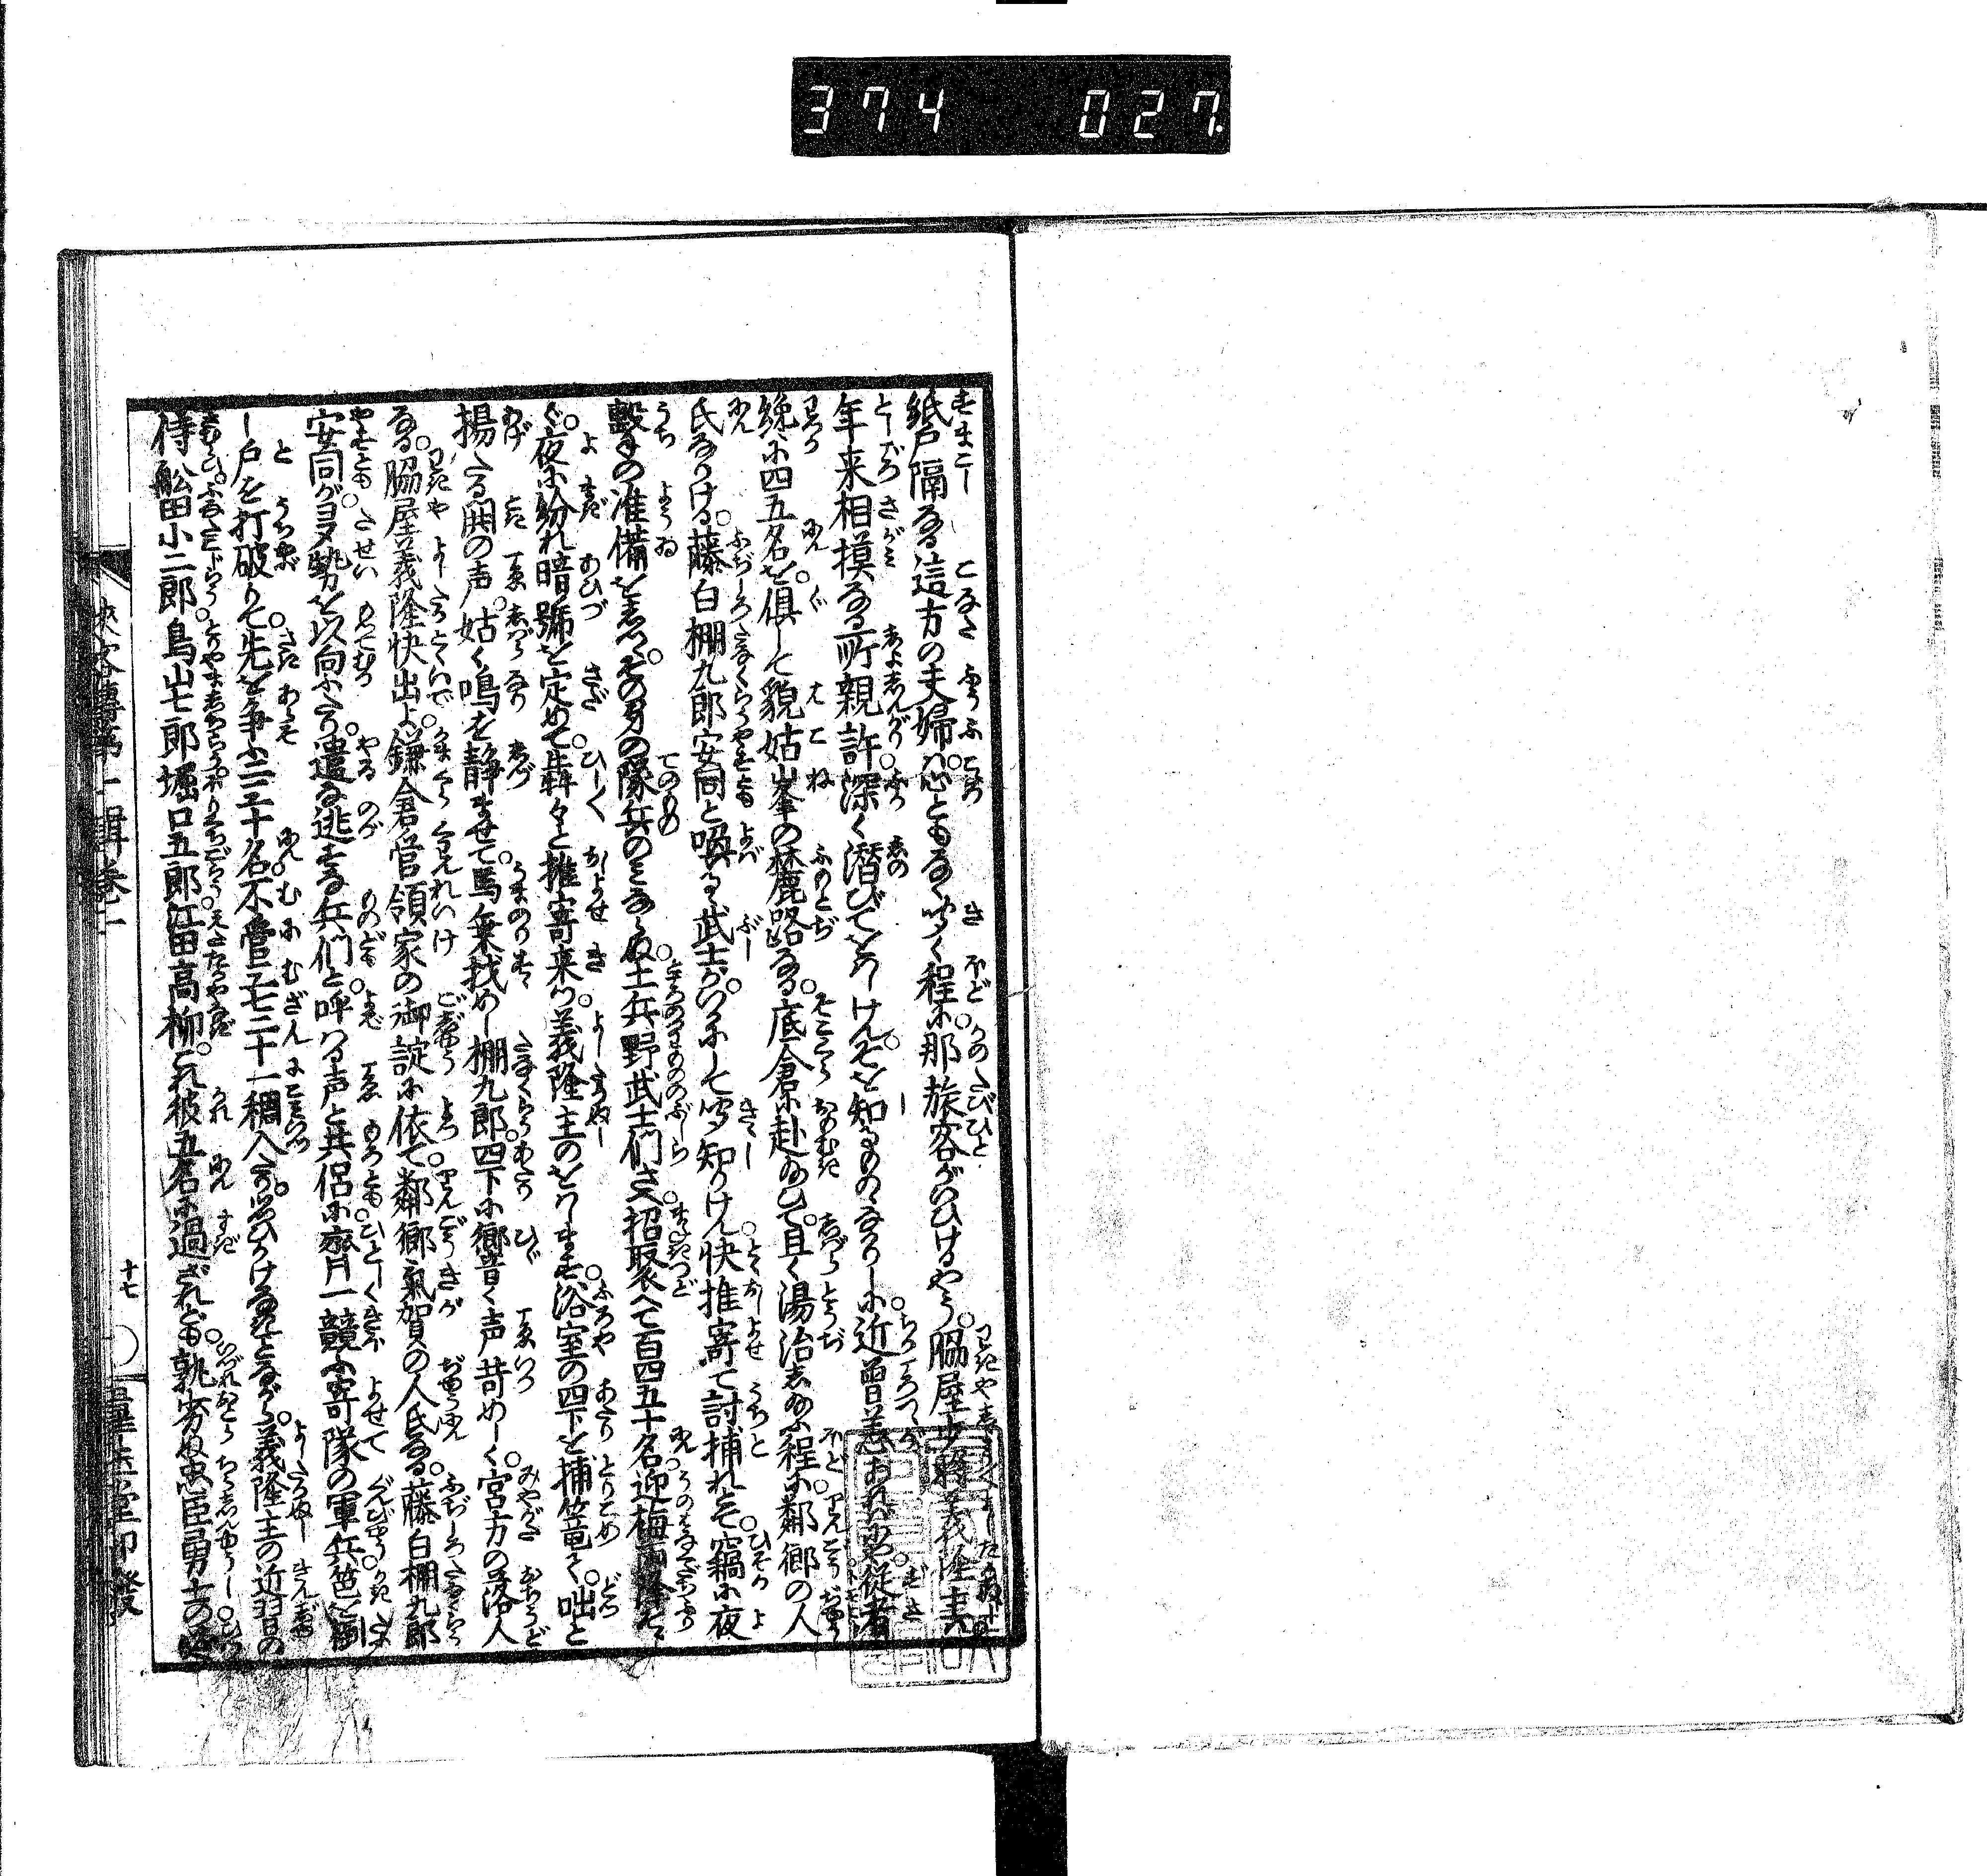 374 027
紙戸隔る這方の夫婦。心ともなく聞く程に。那旅客がいひけるやう。脇屋少将義隆主
年来相模なる所親許。深く潜びてをはしけん。そを知るものゝなかりしに。近曽恙おはしませば。従者
纔に四五名を。倶して貌姑峯の麓路なる。底倉に赴給ひて。且く湯治し給ふ程に。鄰郷の人
氏なりける。藤白棚九郎安同と喚るゝ武士が。いかにして聞知りけん。快推寄て討捕れとて。竊に夜
撃の准備をしつ。その身の隊兵のみならぬ。土兵野武士們さへ。招聚合て百四五十名。迎梅雨降そゝ
ぐ。夜に紛れ暗號を定めて。犇々と推寄来つ。義隆主のをはします。浴室の四下を捕篭て。咄と
揚たる鬨の声。姑く鳴を静させて。馬乗找めし棚九郎。四下に響く声苛めしく。宮方の落人
なる。脇屋義隆快出よ。鎌倉管領家の御諚に依て。鄰郷氣賀の人氏なる。藤白棚九郎
安同が。多勢を以向ふたり。遣るな逃すな兵們と。呼る声と共侶に。齊一競ふ寄隊の軍兵。笆を倒
し戸を打破りて。先を争ふ二三十名。不管不七二十一稠入たり。思ひかけなきことながら。義隆主の近習の
侍。舩田小二郎。鳥山七郎。堀口五郎。江田高柳。これ彼五名に過ざれども。孰劣ぬ忠臣勇士の
侠客傳第一輯巻一
十七
群玉堂印發